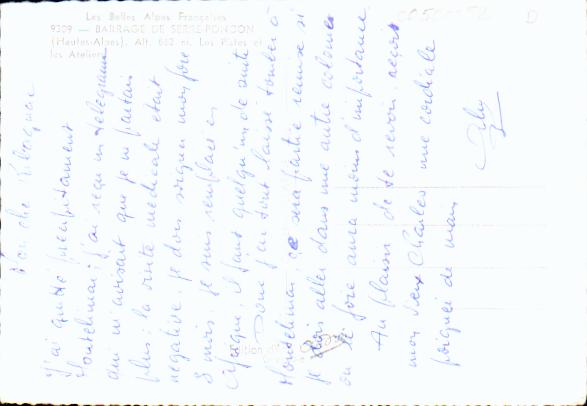 Les Belles Alpes Françaises
9309 — BARRAGE DE SERRE-PONCON
(Hautes-Alpes). Alt. 662 m. Les Pistes et
les Ateliers
Mon cher
J'ai quitté précipitamment
Montélimar; j'ai reçu un télégramme
qui m'avisant que je ne partais
plus: la visite médicale était
négative. Je dois soigner mon foie
8 mois. Je suis remplacé en
Afrique, il faut quelqu'un de suite
Donc j'en tout laissé tomber à
Montélimar, ce sera partie remise si
je dois aller dans une autre colonie
ou le foie aura moins d'importance
Au plaisir de te revoir, reçois
mon vieux Charles une cordiale
poignée de main